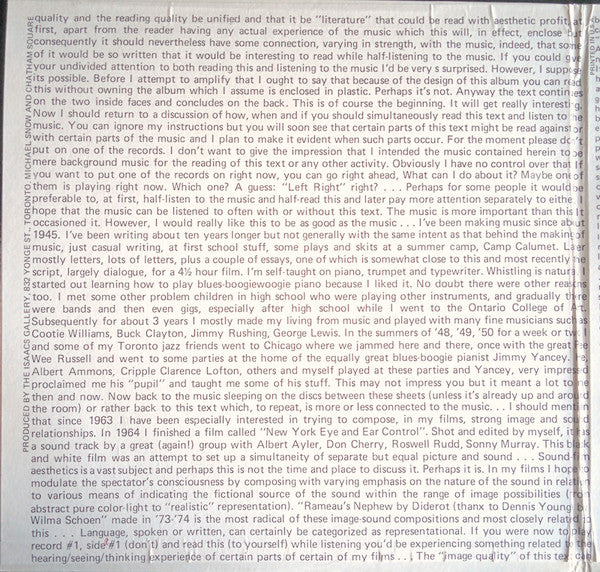 quality and the reading quality be unified and that it be "literature" that could be read with aesthetic profit, at
first, apart from the reader having any actual experience of the music which this will, in effect, enclose but
consequently it should nevertheless have some connection, varying in strength, with the music, indeed, that some
of it would be so written that it would be interesting to read while half-listening to the music. If you could give
your undivided attention to both reading this and listening to the music I'd be very surprised. However, I suppose
its possible. Before I attempt to amplify that I ought to say that because of the design of this album you can read
this without owning the album which I assume is enclosed in plastic. Perhaps it's not. Anyway the text continues
on the two inside faces and concludes on the back. This is of course the beginning. It will get really interesting.
Now I should return to a discussion of how, when and if you should simultaneously read this text and listen to the
music. You can ignore my instructions but you will soon see that certain parts of this text might be read against or
with certain parts of the music and I plan to make it evident when such parts occur. For the moment please don't
put on one of the records. I don't want to give the impression that I intended the music contained herein to be
mere background music for the reading of this text or any other activity. Obviously I have no control over that. If
you want to put one of the records on right now, you can go right ahead, What can I do about it? Maybe one of
them is playing right now. Which one? A guess: "Left Right" right? . . . Perhaps for some people it would be
preferable to, at first, half-listen to the music and half-read this and later pay more attention separately to either. I
hope that the music can be listened to often with or without this text. The music is more important than this. It
occasioned it. However, I would really like this to be as good as the music . . . I've been making music since about
1945. I've been writing about ten years longer but not generally with the same intent as that behind the making of
music, just casual writing, at first school stuff, some plays and skits at a summer camp, Camp Calumet. Later
mostly letters, lots of letters, plus a couple of essays, one of which is somewhat close to this and most recently the
script, largely dialogue, for a 4½ hour film. I'm self-taught on piano, trumpet and typewriter. Whistling is natural. I
started out learning how to play blues-boogiewoogie piano because I liked it. No doubt there were other reasons
too. I met some other problem children in high school who were playing other instruments, and gradually there
were bands and then even gigs, especially after high school while I went to the Ontario College of Art.
Subsequently for about 3 years I mostly made my living from music and played with many fine musicians such as
Cootie Williams, Buck Clayton, Jimmy Rushing, George Lewis. In the summers of '48, '49, '50 for a week or two I
and some of my Toronto jazz friends went to Chicago where we jammed here and there, once with the great Pee
Wee Russell and went to some parties at the home of the equally great blues-boogie pianist Jimmy Yancey. He,
Albert Ammons, Cripple Clarence Lofton, others and myself played at these parties and Yancey, very impressed
proclaimed me his "pupil" and taught me some of his stuff. This may not impress you but it meant a lot to me
then and now. Now back to the music sleeping on the discs between these sheets (unless it's already up and around
the room) or rather back to this text which, to repeat, is more or less connected to the music. . . I should mention
that since 1963 I have been especially interested in trying to compose, in my films, strong image and sound
relationships. In 1964 I finished a film called "New York Eye and Ear Control". Shot and edited by myself, it has
a sound track by a great (again!) group with Albert Ayler, Don Cherry, Roswell Rudd, Sonny Murray. This black
and white film was an attempt to set up a simultaneity of separate but equal picture and sound . . . Sound-film
aesthetics is a vast subject and perhaps this is not the time and place to discuss it. Perhaps it is. In my films I hope to
modulate the spectator's consciousness by composing with varying emphasis on the nature of the sound in relation
to various means of indicating the fictional source of the sound within the range of image possibilities (from
abstract pure color-light to "realistic" representation). "Rameau's Nephew by Diderot (thanx to Dennis Young) by
Wilma Schoen" made in '73-'74 is the most radical of these image-sound compositions and most closely related to
this . . . Language, spoken or written, can certainly be categorized as representational. If you were now to play
record #1, side #1 (don't) and read this (to yourself) while listening you'd be experiencing something related to the
hearing/seeing/thinking experience of certain parts of certain of my films . . . The "image quality" of this text can
PRODUCED BY THE ISAACS GALLERY, 832 YONGE ST., TORONTO. MICHAEL SNOW AND CHATHAM SQUARE
PRINTED IN U.S.A.